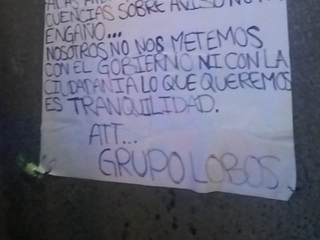 CUENCIAS SOBRE AVISO NO HAY
ENGAÑO...
NOSOTROS NO NOS METEMOS
CON EL GOBIERNO NI CON LA
CIUDADANIA LO QUE QUEREMOS
ES TRANQUILIDAD.
ATT...
GRUPO LOBOS